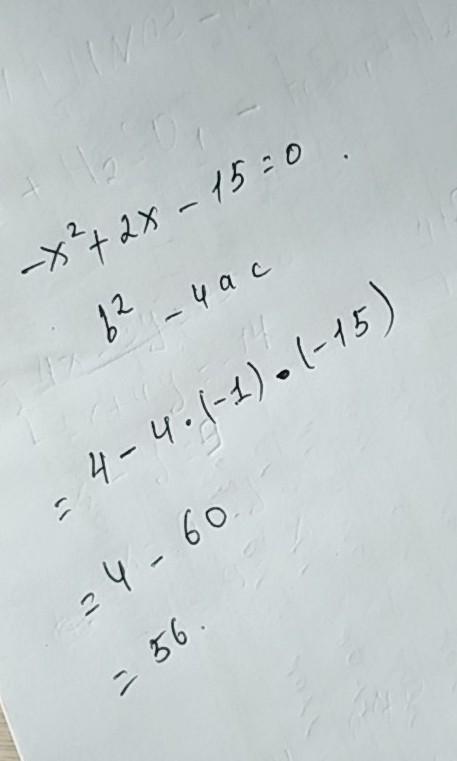 -x² + 2x - 15 = 0.
b² - 4ac
= 4 - 4·(-1)·(-15)
= 4 - 60
= 56.